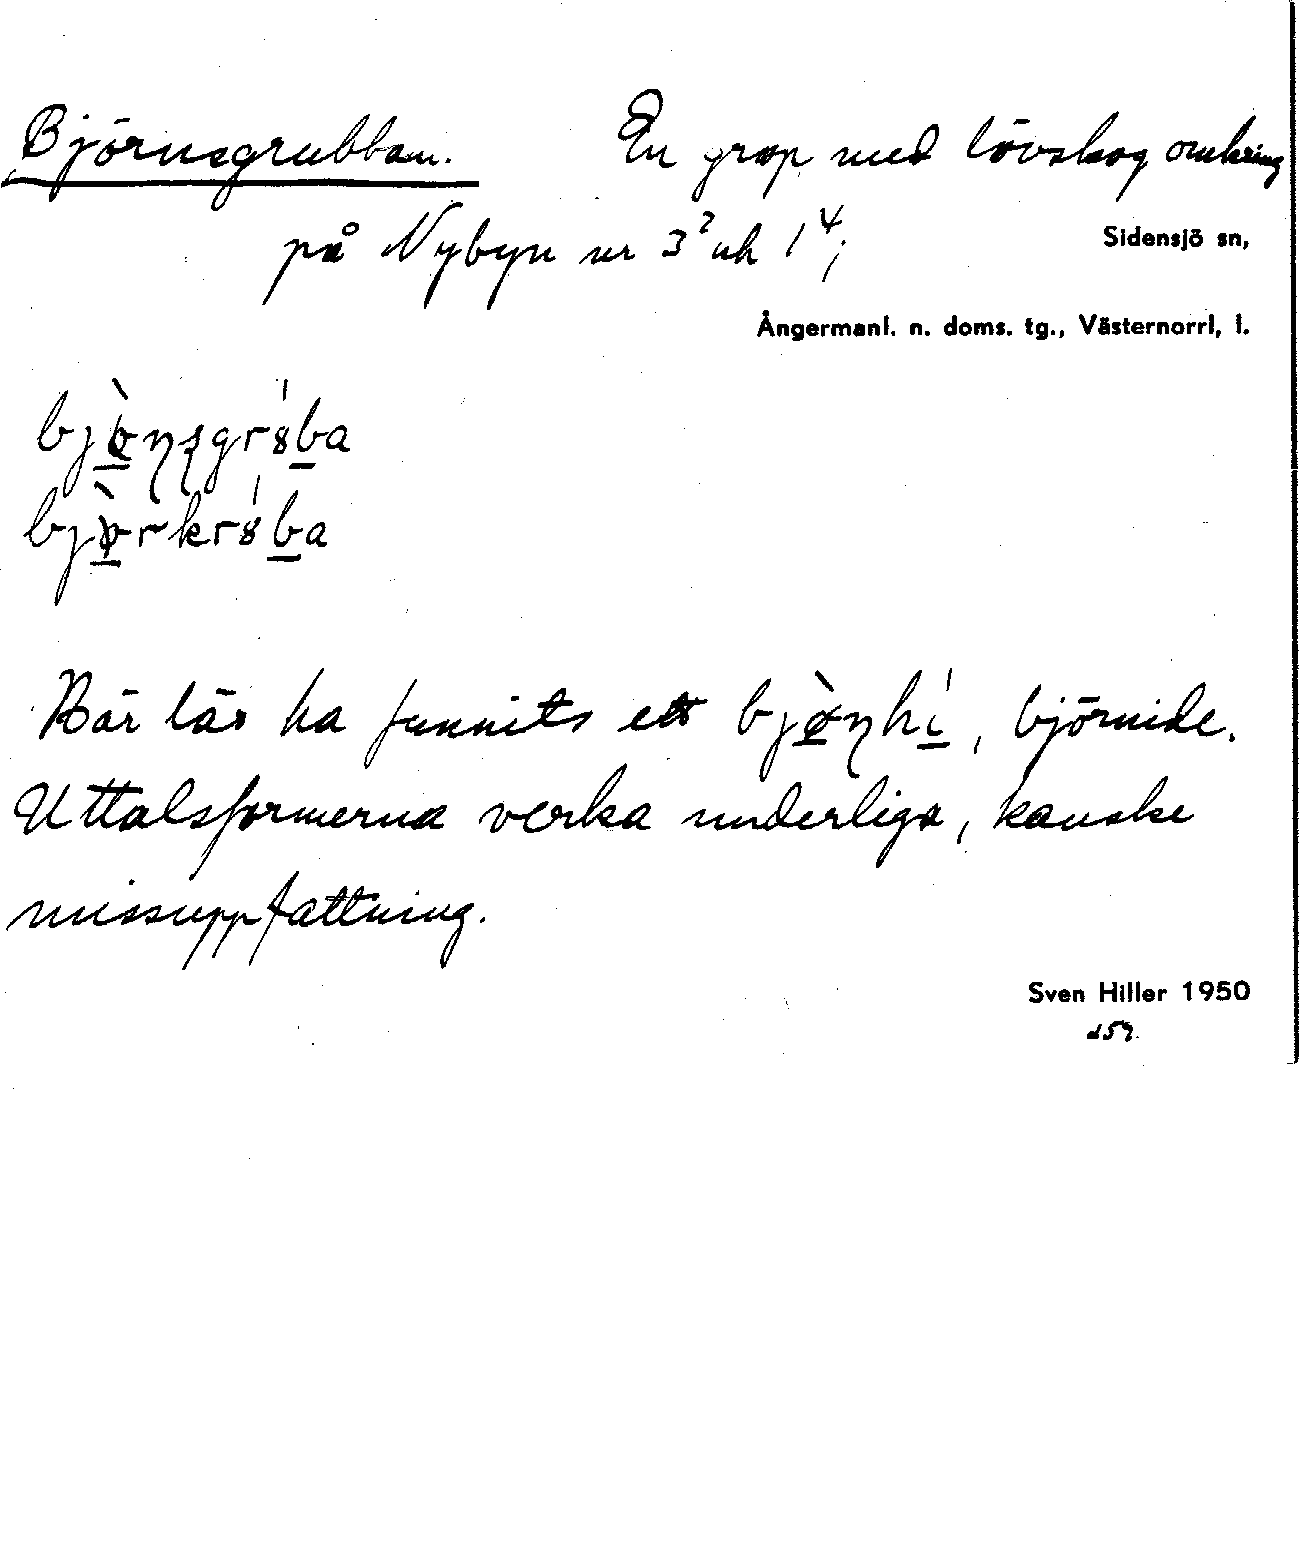 Björnsgrubban. En grop med lövskog omkring
på Nybyn nr 3² och 1⁴;
Sidensjö sn,
Ångermanl. n. doms. tg., Västernorrl, l.
Här lär ha funnits ett björnide.
Uttalsformerna verka underliga, kanske
missuppfattning.
Sven Hiller 1950